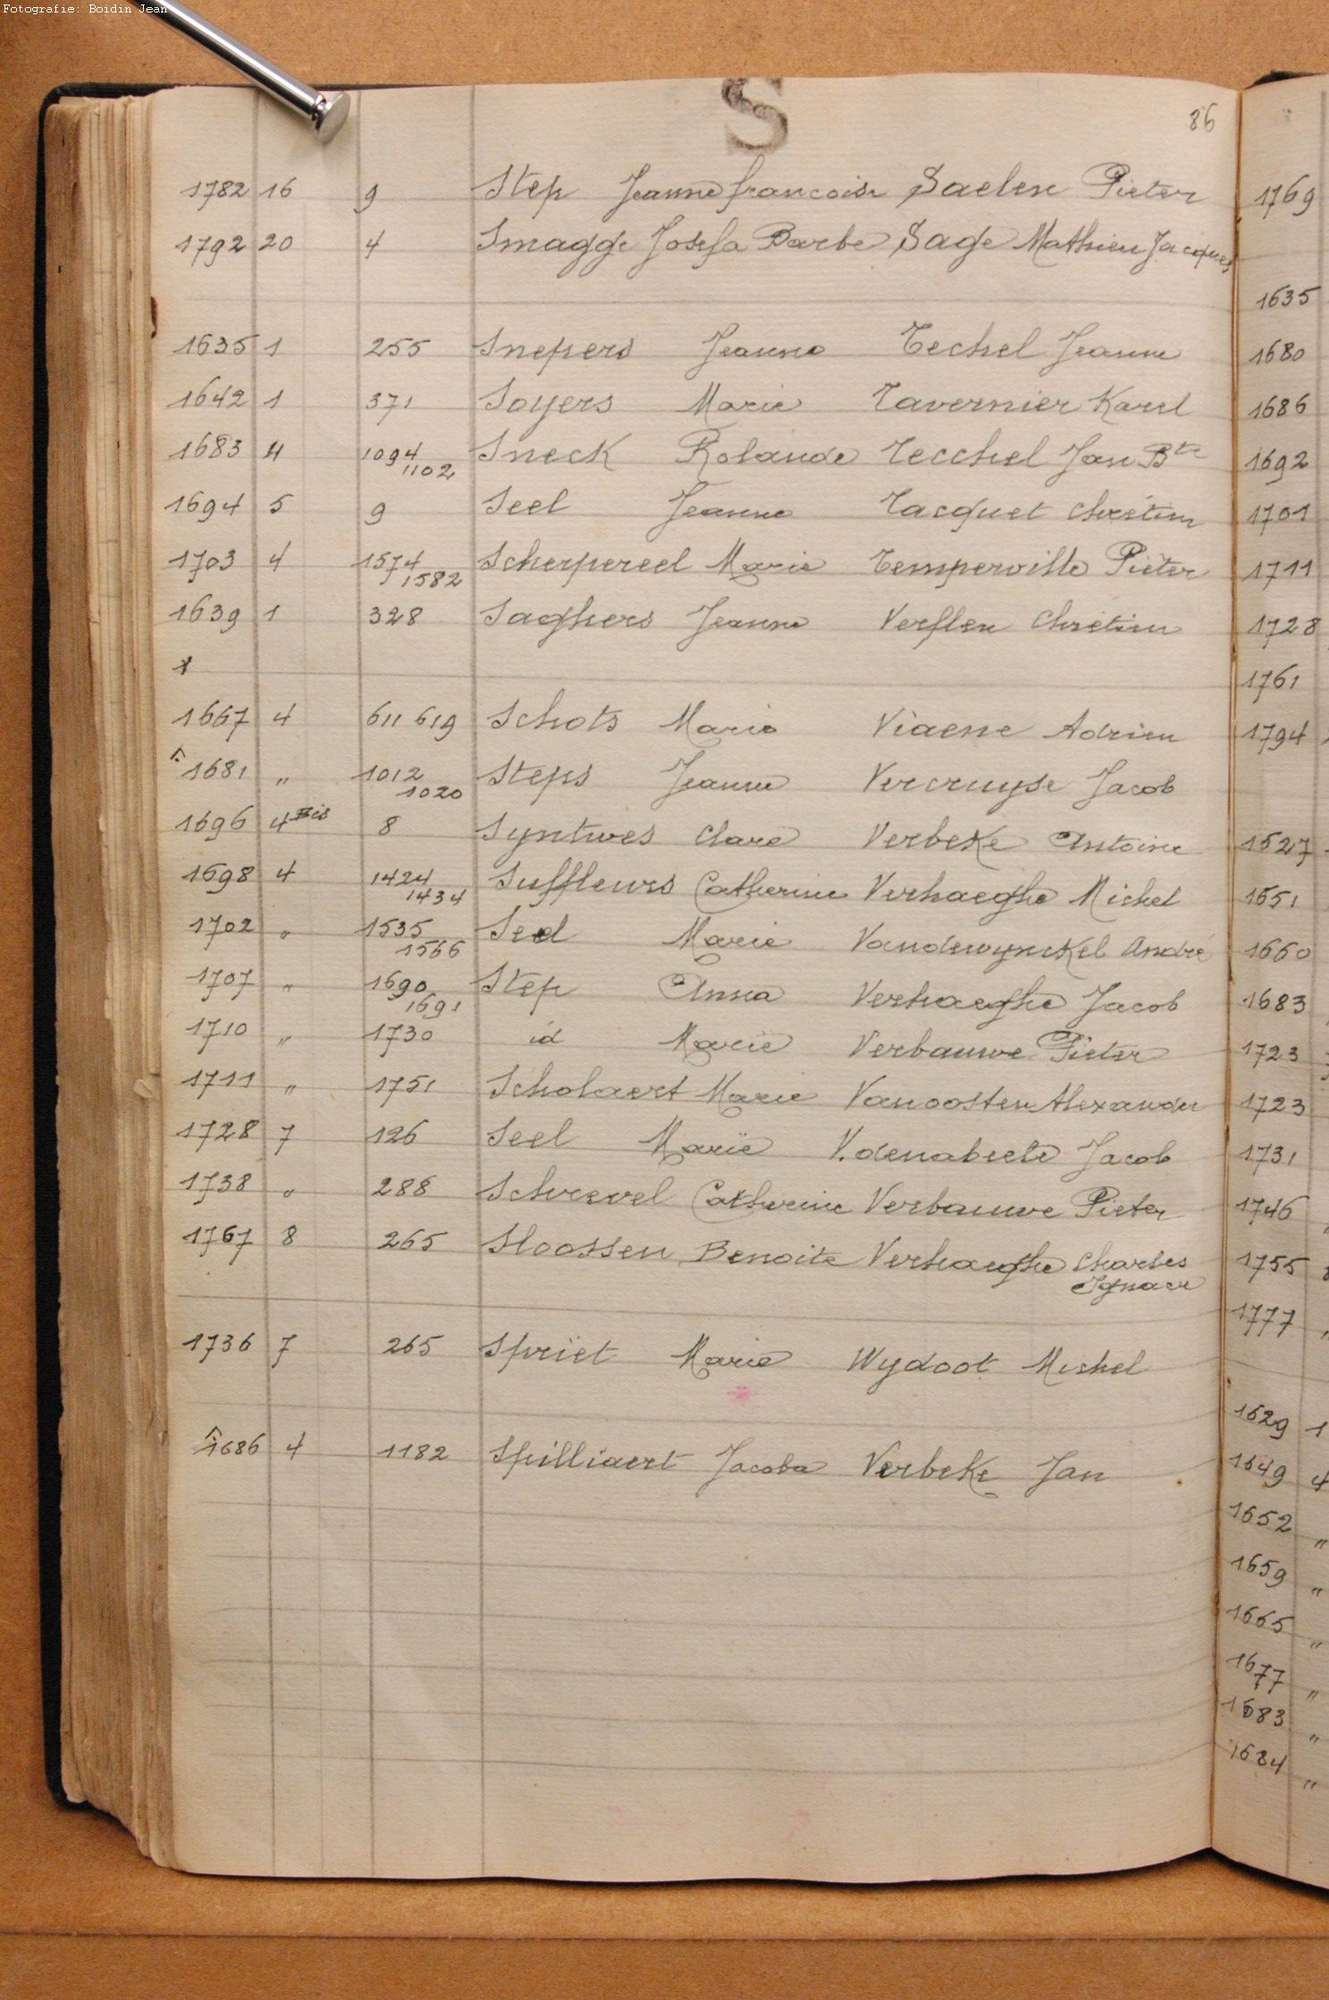 Fotografie: Boidin Jean
S
86
1782 16 9 Step Jeanne francoise Saelen Pieter
1792 20 4 Smagge Josefa Barbe Sage Mathieu Jacques
1635 1 255 Snepers Jeanne Techel Jeanne
1642 1 371 Soyers Marie Tavernier Karel
1683 4 1094 1102 Sneck Rolande Tecchel Jan Bte
1694 5 9 Seel Jeanne Tacquet Chretien
1703 4 1574 1582 Scherpereel Marie Temperville Pieter
1639 1 328 Saghers Jeanne Verflen Chretien
x
1667 4 611 619 Schots Marie Viaene Adrien
1681 " 1012 1020 Steps Jeanne Vercruyse Jacob
1696 4 Bis 8 Syntwes Clare Verbeke Antoine
1698 4 1424 1434 Suffleurs Catherine Verhaeghe Michel
1702 " 1535 1566 Seel Marie Vandewynckel André
1707 " 1690 1691 Step Anna Verhaeghe Jacob
1710 " 1730 id Marie Verbauwe Pieter
1711 " 1751 Scholaert Marie Vanoosten Alexander
1728 7 126 Seel Marie V.denabeele Jacob
1738 " 288 Schrevel Catherine Verbauwe Pieter
1767 8 265 Sloossen Benoite Verhaeghe Charles
Ignace
1736 7 265 Spriet Marie Wydoot Michel
1686 4 1182 Spilliaert Jacoba Verbeke Jan
1769
1635
1680
1686
1692
1701
1711
1728
1761
1794
1527
1651
1660
1683
1723
1723
1731
1746
1755
1777
1629 1
1649 4
1652 "
1659 "
1665 "
1677 "
1683 "
1684 "